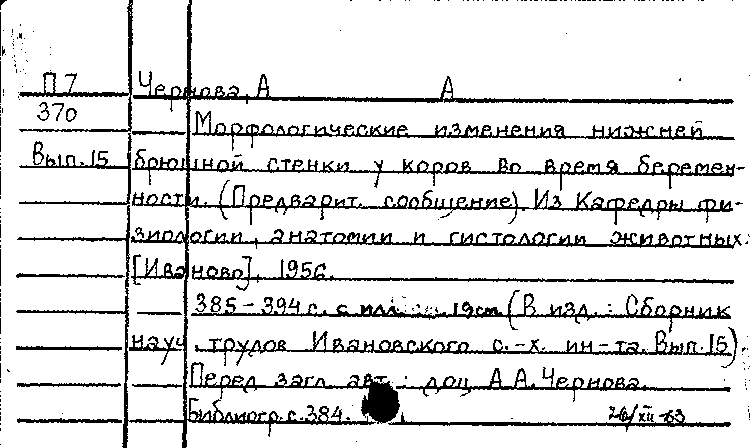 П 7 Чернова, А А
370 Морфологические изменения нижней
Вып. 15 брюшной стенки у коров во время беремен-
ности. (Предварит. сообщение). Из Кафедры фи-
зиологии, анатомии и гистологии животных.
[Иваново], 1956.
385-394 с. с илл. 19 см. (В изд.: Сборник
науч. трудов Ивановского с.-х. ин-та. Вып. 15).
Перед загл. авт.: доц. А.А. Чернова.
Библиогр. с. 384. 26/XII-63